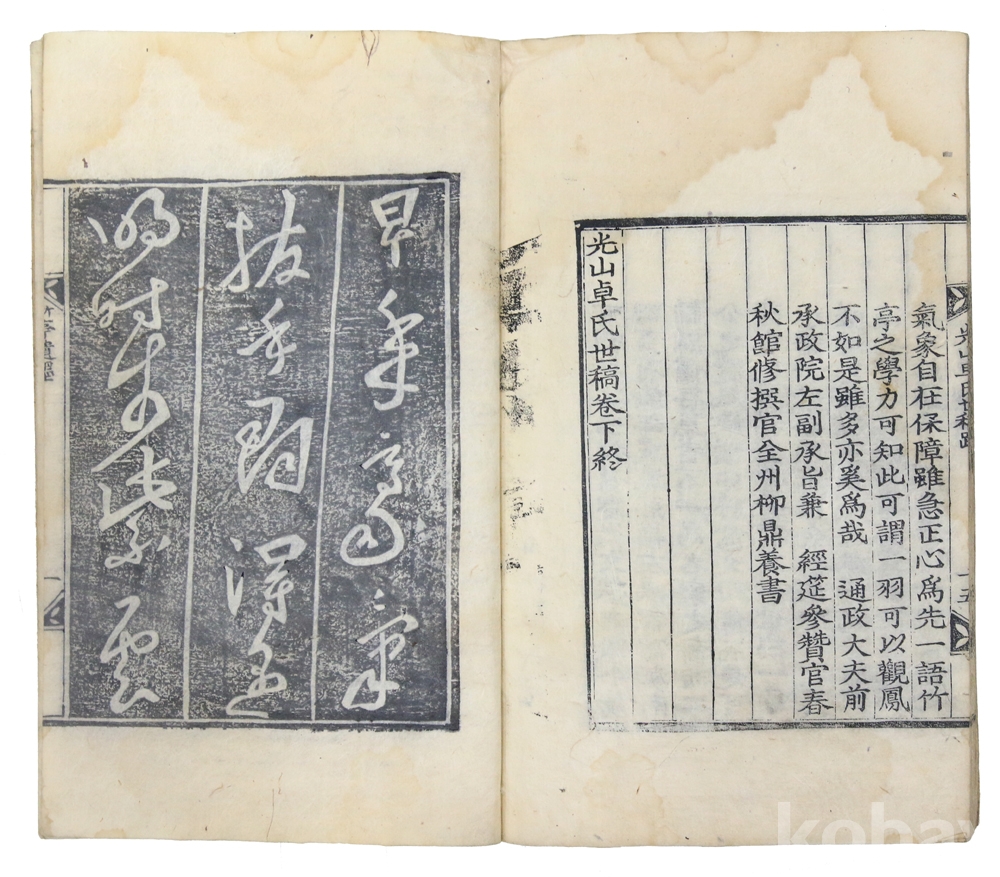 光山卓氏世稿跋
十五
氣象自在保障雖急正心爲先一語竹
亭之學力可知此可謂一羽可以觀鳳
不如是雖多亦奚爲哉　通政大夫前
承政院左副承旨兼　經筵參贊官春
秋館修撰官全州柳鼎養書
光山卓氏世稿卷下終
早年高
拔
明時
雲
竹亭遺墨
一
kobay